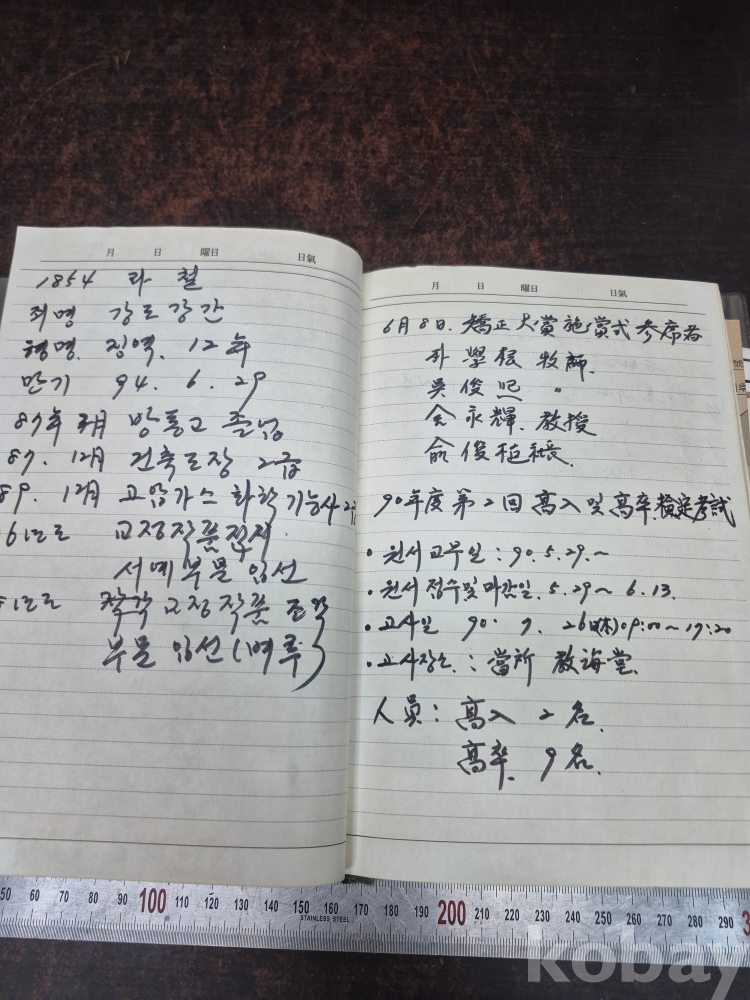 月 日 曜日 日氣
1854 라 철
죄명 강도강간
형명. 징역. 12年
만기 94. 6. 29
87年 2月 방통고 졸업
87. 12月 건축도장 2급
89. 12月 고압가스 화학기능사 2급
교정작품전시
서예부문 입선
교정작품 조각
부문 입선(벼루)
月 日 曜日 日氣
6月 8日. 矯正大賞施賞式 参席者
朴學 牧師.
吳俊 〃
金永輝. 教授
俞俊 社長.
90年度 第2回 高入 및 高卒. 檢定考試
• 원서교부일 : 90. 5. 29. ~
• 원서접수및마감일. 5. 29 ~ 6. 13.
• 고사일 90. 7. 26日(木) 09:00 ~ 17:20
• 고사장소 : 當所 教誨堂.
人員 : 高入 2名.
高卒. 9名.
50 60 70 80 90 100 110 120 130 140 150 160 170 180 190 200 210 220 230 240 250 260 270 280 290
STAINLESS STEEL
kobay